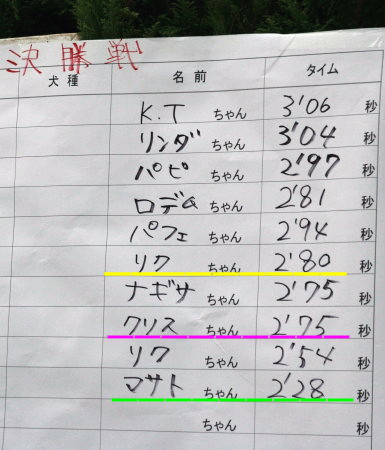 決勝戦
犬種 名前 タイム
K.T ちゃん 3'06 秒
リンダ ちゃん 3'04 秒
パピ ちゃん 2'97 秒
ロデム ちゃん 2'81 秒
パフェ ちゃん 2'94 秒
リク ちゃん 2'80 秒
ナギサ ちゃん 2'75 秒
クリス ちゃん 2'75 秒
リク ちゃん 2'54 秒
マサト ちゃん 2'28 秒
ちゃん 秒